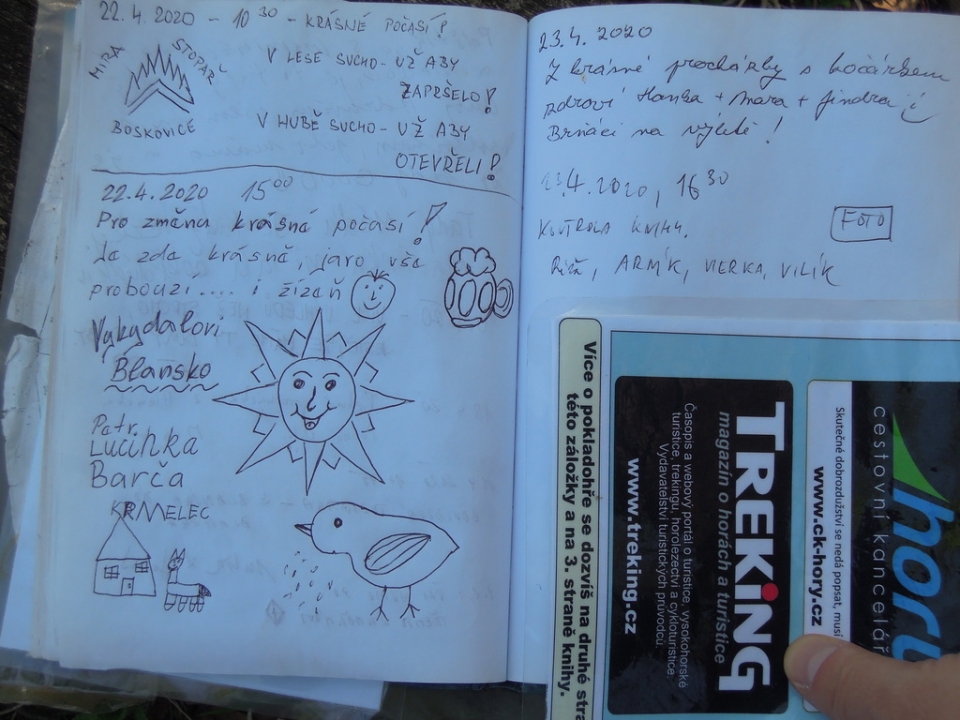 22. 4. 2020 - 10 30 - KRÁSNÉ POČASÍ!
MIRA STOPAŘ
BOSKOVICE
V LESE SUCHO - UŽ ABY
ZAPRŠELO!
V HUBĚ SUCHO - UŽ ABY
OTEVŘELI!
22.4.2020 15 00
Pro změnu krásné počasí!
Je zde krásně, jaro vše
probouzí .... i žízeň
Vykydalovi
Blansko
Patr.
Lucinka
Barča
KRMELEC
23.4. 2020
Z krásné procházky s kočárkem
zdraví Hanka + Mara + Jindra
Brňáci na výletě!
23.4.2020, 16 30
KONTROLA KNIHY.
FOTO
ARMÍK, VERKA, VILÍK
Více o pokladohře se dozvíš na druhé stra
této záložky a na 3. straně knihy.
TREKING
magazín o horách a turistice
Časopis a webový portál o turistice, vysokohorské
turistice, trekingu, horolezectví a cykloturistice.
Vydavatelství turistických průvodců.
www.treking.cz
hory
cestovní kancelář
Skutečné dobrodružství se nedá popsat, musí
www.ck-hory.cz